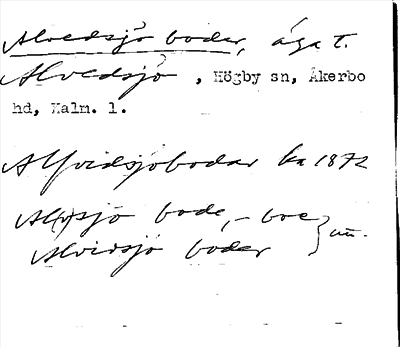 Alvedsjö bodar, äga t.
Alvedsjö, Högby sn, Åkerbo
hd, Kalm. l.
Alfvidsjöbodar ka 1872
Al(v)sjö bode, - boe
Alvidsjö boder } uu.